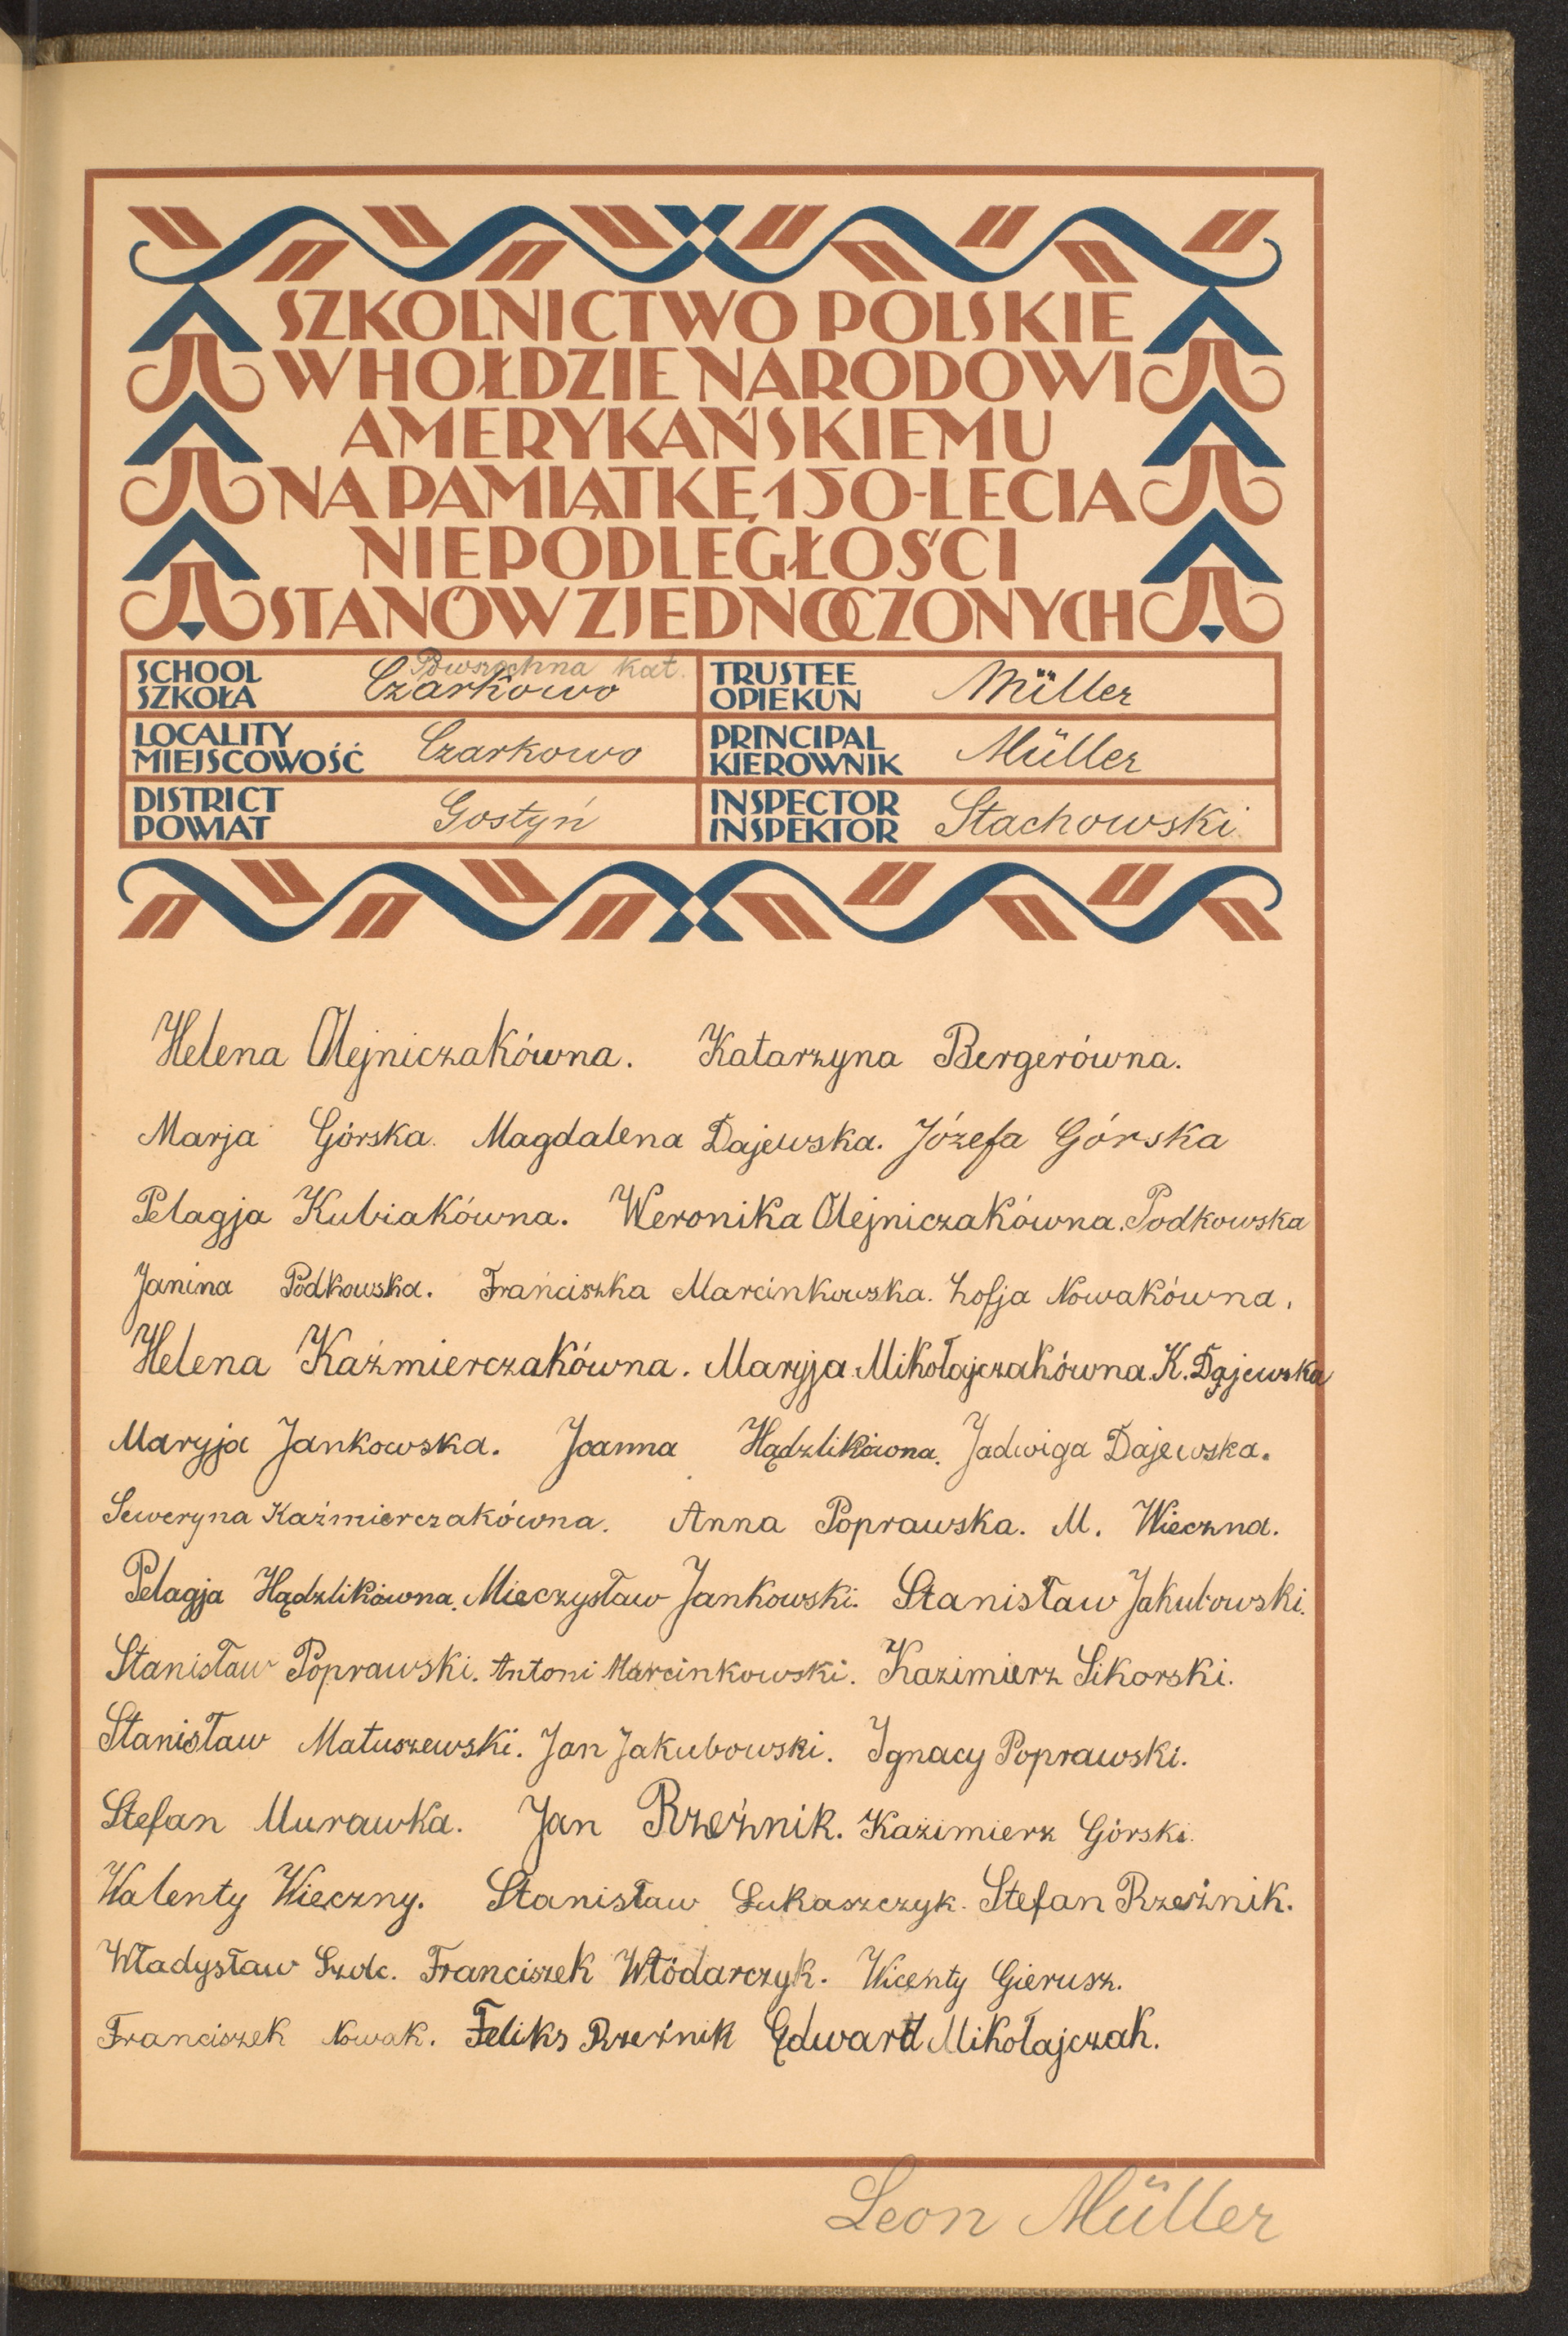 SZKOLNICTWO POLSKIE
W HOŁDZIE NARODOWI
AMERYKAŃSKIEMU
NA PAMIĄTKĘ 150-LECIA
NIEPODLEGŁOŚCI
STANÓW ZJEDNOCZONYCH
SCHOOL
SZKOŁA
Powszechna kat.
Czarkowo
TRUSTEE
OPIEKUN
Müller
LOCALITY
MIEJSCOWOŚĆ
Czarkowo
PRINCIPAL
KIEROWNIK
Müller
DISTRICT
POWIAT
Gostyń
INSPECTOR
INSPEKTOR
Stachowski
Helena Olejniczakówna. Katarzyna Bergerówna.
Marja Górska. Magdalena Dajewska. Józefa Górska
Pelagja Kubiakówna. Weronika Olejniczakówna. Podkowska
Janina Podkowska. Franciszka Marcinkowska. Zofja Nowakówna.
Helena Kaźmierczakówna. Maryja Mikołajczakówna. K. Dajewska
Maryja Jankowska. Joanna Hądzlikówna. Jadwiga Dajewska.
Seweryna Kaźmierczakówna. Anna Poprawska. M. Wieczna.
Pelagja Hądzlikówna. Mieczysław Jankowski. Stanisław Jakubowski.
Stanisław Poprawski. Antoni Marcinkowski. Kazimierz Sikorski.
Stanisław Matuszewski. Jan Jakubowski. Ignacy Poprawski.
Stefan Murawka. Jan Rzeźnik. Kazimierz Górski.
Walenty Wieczny. Stanisław Łukaszczyk. Stefan Rzeźnik.
Władysław Szulc. Franciszek Włódarczyk. Wicenty Gierusz.
Franciszek Nowak. Feliks Rzeźnik Edward Mikołajczak.
Leon Müller